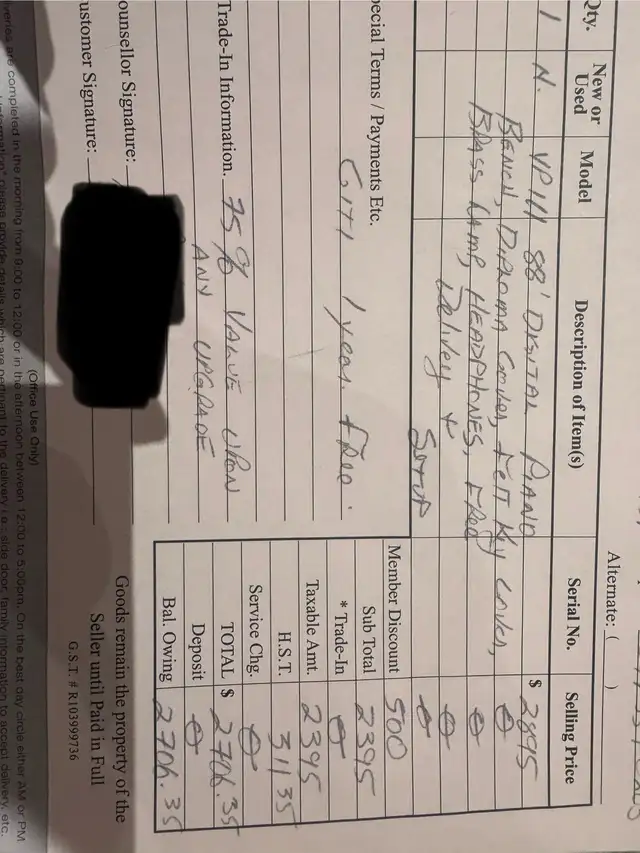 Alternate: ( )
Qty. New or Used Model Description of Item(s) Serial No. Selling Price
1 N. VP111 88' DIGITAL PIANO $ 2895
BENCH, DIPLOMA COVER, FELT KEY COVER, 0
BRASS LAMP, HEADPHONES, FREE 0
Delivery + 0
SETUP 0
Member Discount 500
Sub Total 2395
* Trade-In 0
Taxable Amt. 2395
H.S.T. 311 35
Service Chg. 0
TOTAL $ 2706.35
Deposit 0
Bal. Owing 2706.35
pecial Terms / Payments Etc.
1 year. Free.
Trade-In Information. 75% VALUE UPON
ANY UPGRADE
ounsellor Signature:
ustomer Signature:
Goods remain the property of the
Seller until Paid in Full
G.S.T. # R103999736
(Office Use Only)
veries are completed in the morning from 9:00 to 12:00 or in the afternoon between 12:00 to 5:00pm. On the best day circle either AM or PM
please provide details which are pertinent to the delivery i.e.: side door, family information to accept delivery, etc.